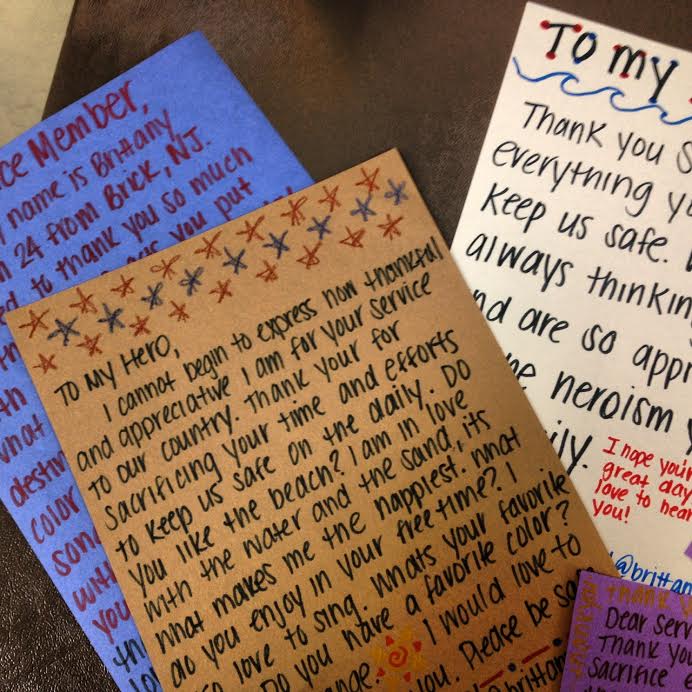 ce Member,
name is Brittany
24 from Brick, NJ.
to thank you so much
you put
what
destin
color
song
with
you
TO MY HERO,
I cannot begin to express how thankful
and appreciative I am for your service
to our country. Thank your for
Sacrificing your time and efforts
to keep us safe on the daily. Do
you like the beach? I am in love
with the water and the sand, its
what makes me the happiest. What
do you enjoy in your free time? I
love to sing. Whats your favorite
Do you have a favorite color?
I would love to
you. Please be sa
brittan
To my
Thank you S
everything yo
Keep us safe.
always thinkin
nd are so appr
he heroism y
ily.
I hope your
great day
love to hear
you!
@brittan
Thank Y
Dear Serv
Thank you
Sacrifice